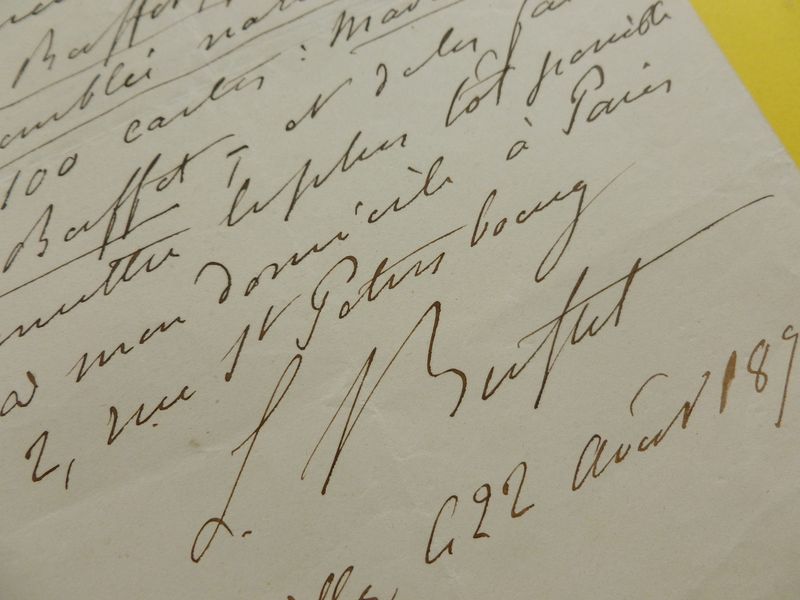 Buffet
100 cartes : Mad
Buffet, et de les fai
mettre le plus tôt possible
à mon domicile à Paris
2, rue St Petersbourg
L. Buffet
le 22 août 189